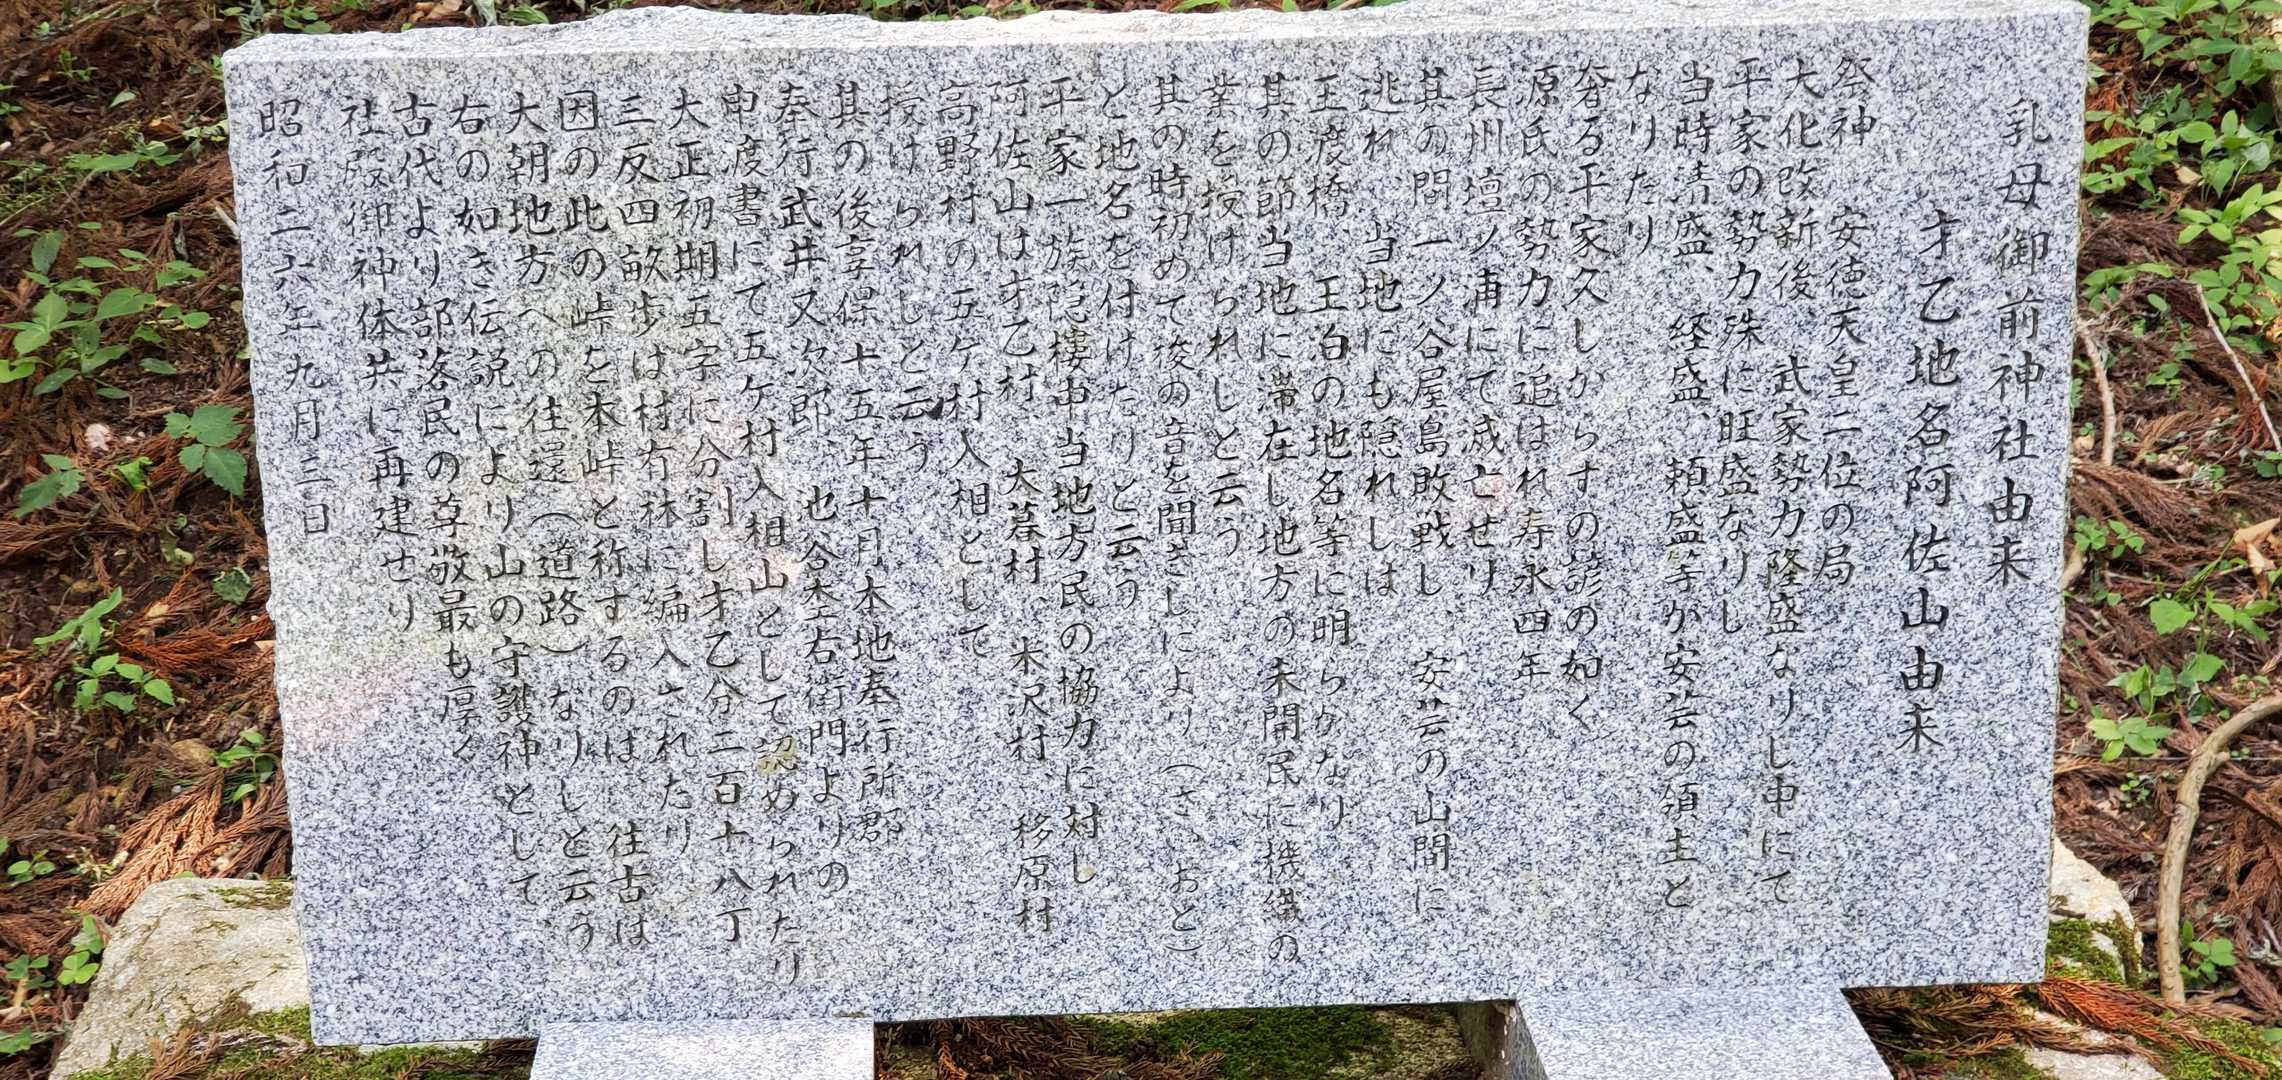 乳母御前神社由来
才乙地名阿佐山由来
祭神　安徳天皇二位の局
大化改新後、武家勢力隆盛なりし中にて
平家の勢力殊に旺盛なりし
当時清盛、経盛、頼盛等が安芸の領主と
なりたり
奢る平家久しからずの諺の如く
源氏の勢力に追はれ寿永四年
長州壇ノ浦にて滅亡せり
其の間一ノ谷屋島敗戦し、安芸の山間に
逃れ、当地にも隠れしは
王渡橋、王泊の地名等に明らかなり
其の節当地に滞在し地方の未開民に機織の
業を授けられしと云う
其の時初めて梭の音を聞きしにより（さ、おと）
と地名を付けたりと云う
平家一族隠棲中当地方民の協力に対し
阿佐山は才乙村、大暮村、米沢村、移原村
高野村の五ケ村入相として
授けられしと云う
其の後享保十五年十月本地奉行所郡
奉行武井又次郎、池谷杢右衛門よりの
申渡書にて五ケ村入相山として認められたり
大正初期五字に分割し才乙分二百十八丁
三反四畝歩は村有林に編入されたり
因の此の峠を本峠と称するのは、往古は
大朝地方への往還（道路）なりしと云う
右の如き伝説により山の守護神として
古代より部落民の尊敬最も厚々
社殿御神体共に再建せり
昭和二六年九月三日